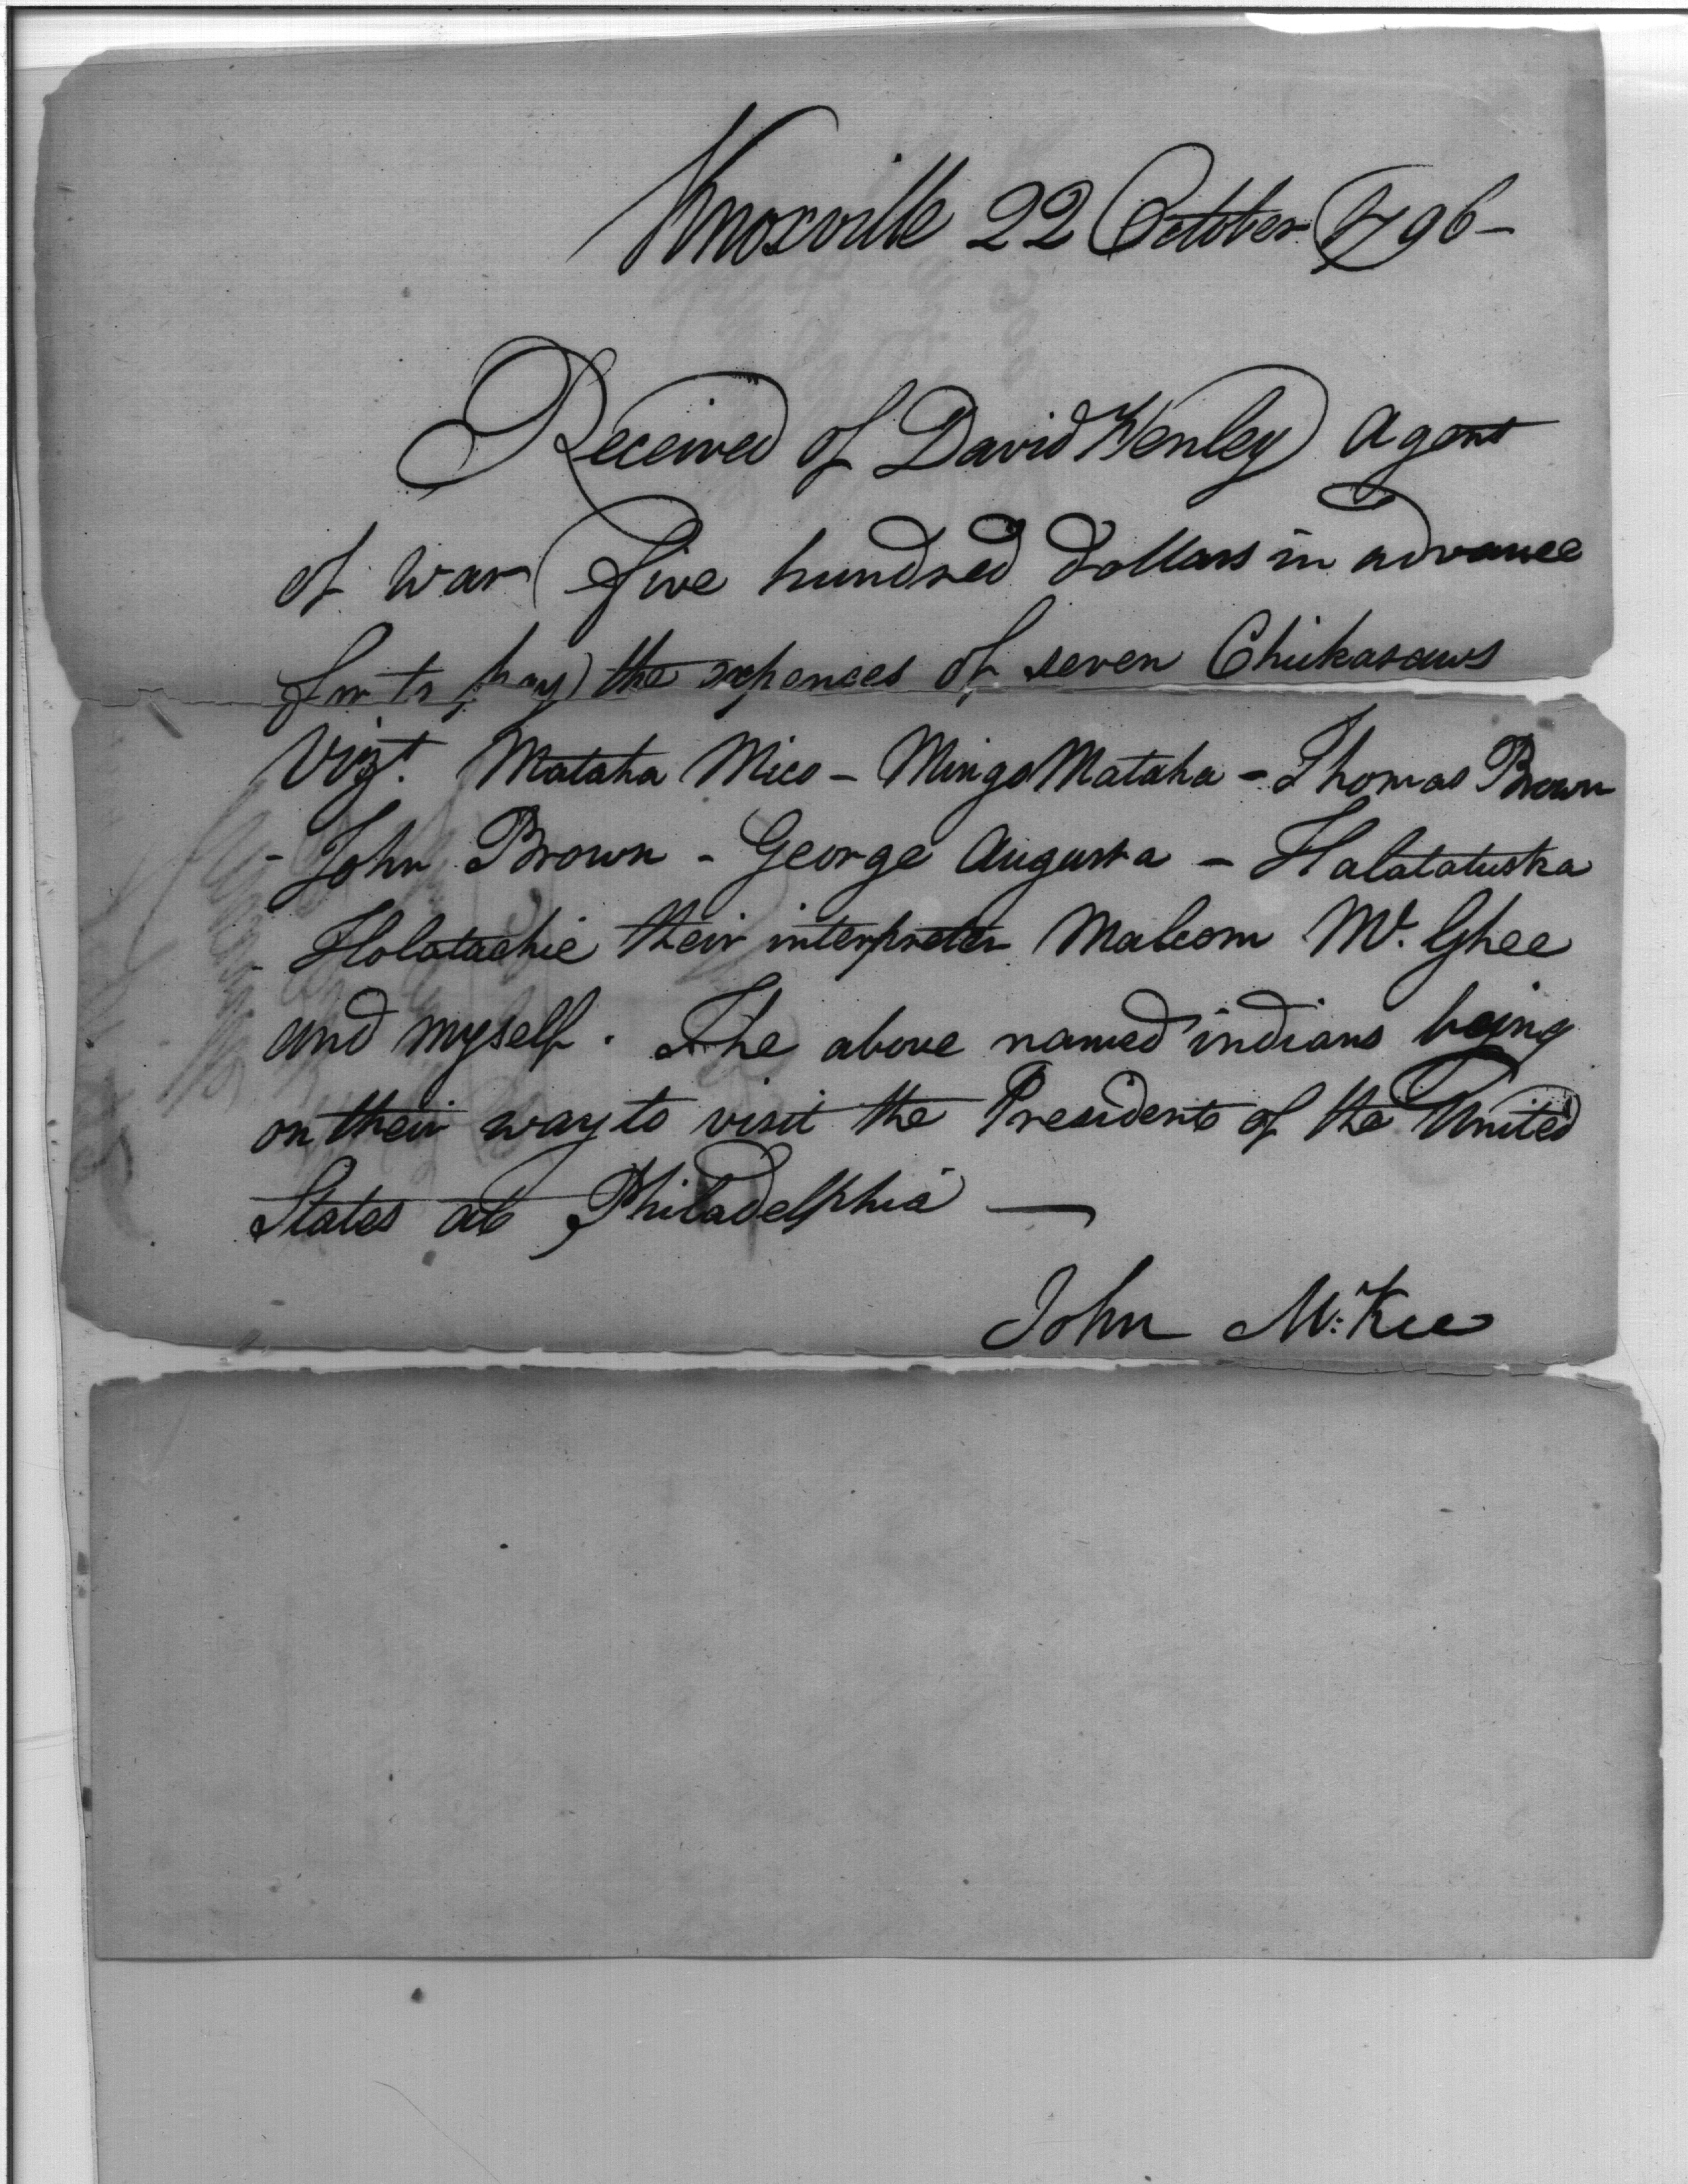 Knoxville 22 October 1796 -
Received of David Henley Agent
of War five hundred dollars in advance
for to pay the expences of seven Chickasaws
Vizt. Mataha Mico - Mingo Mataha - Thomas Brown
- John Brown - George Augusta - Halatatuska
- Holatachie their interpreter Malcom Mc. Ghee
and myself. The above named indians being
on their way to visit the President of the United
States at Philadelphia —
John McKee